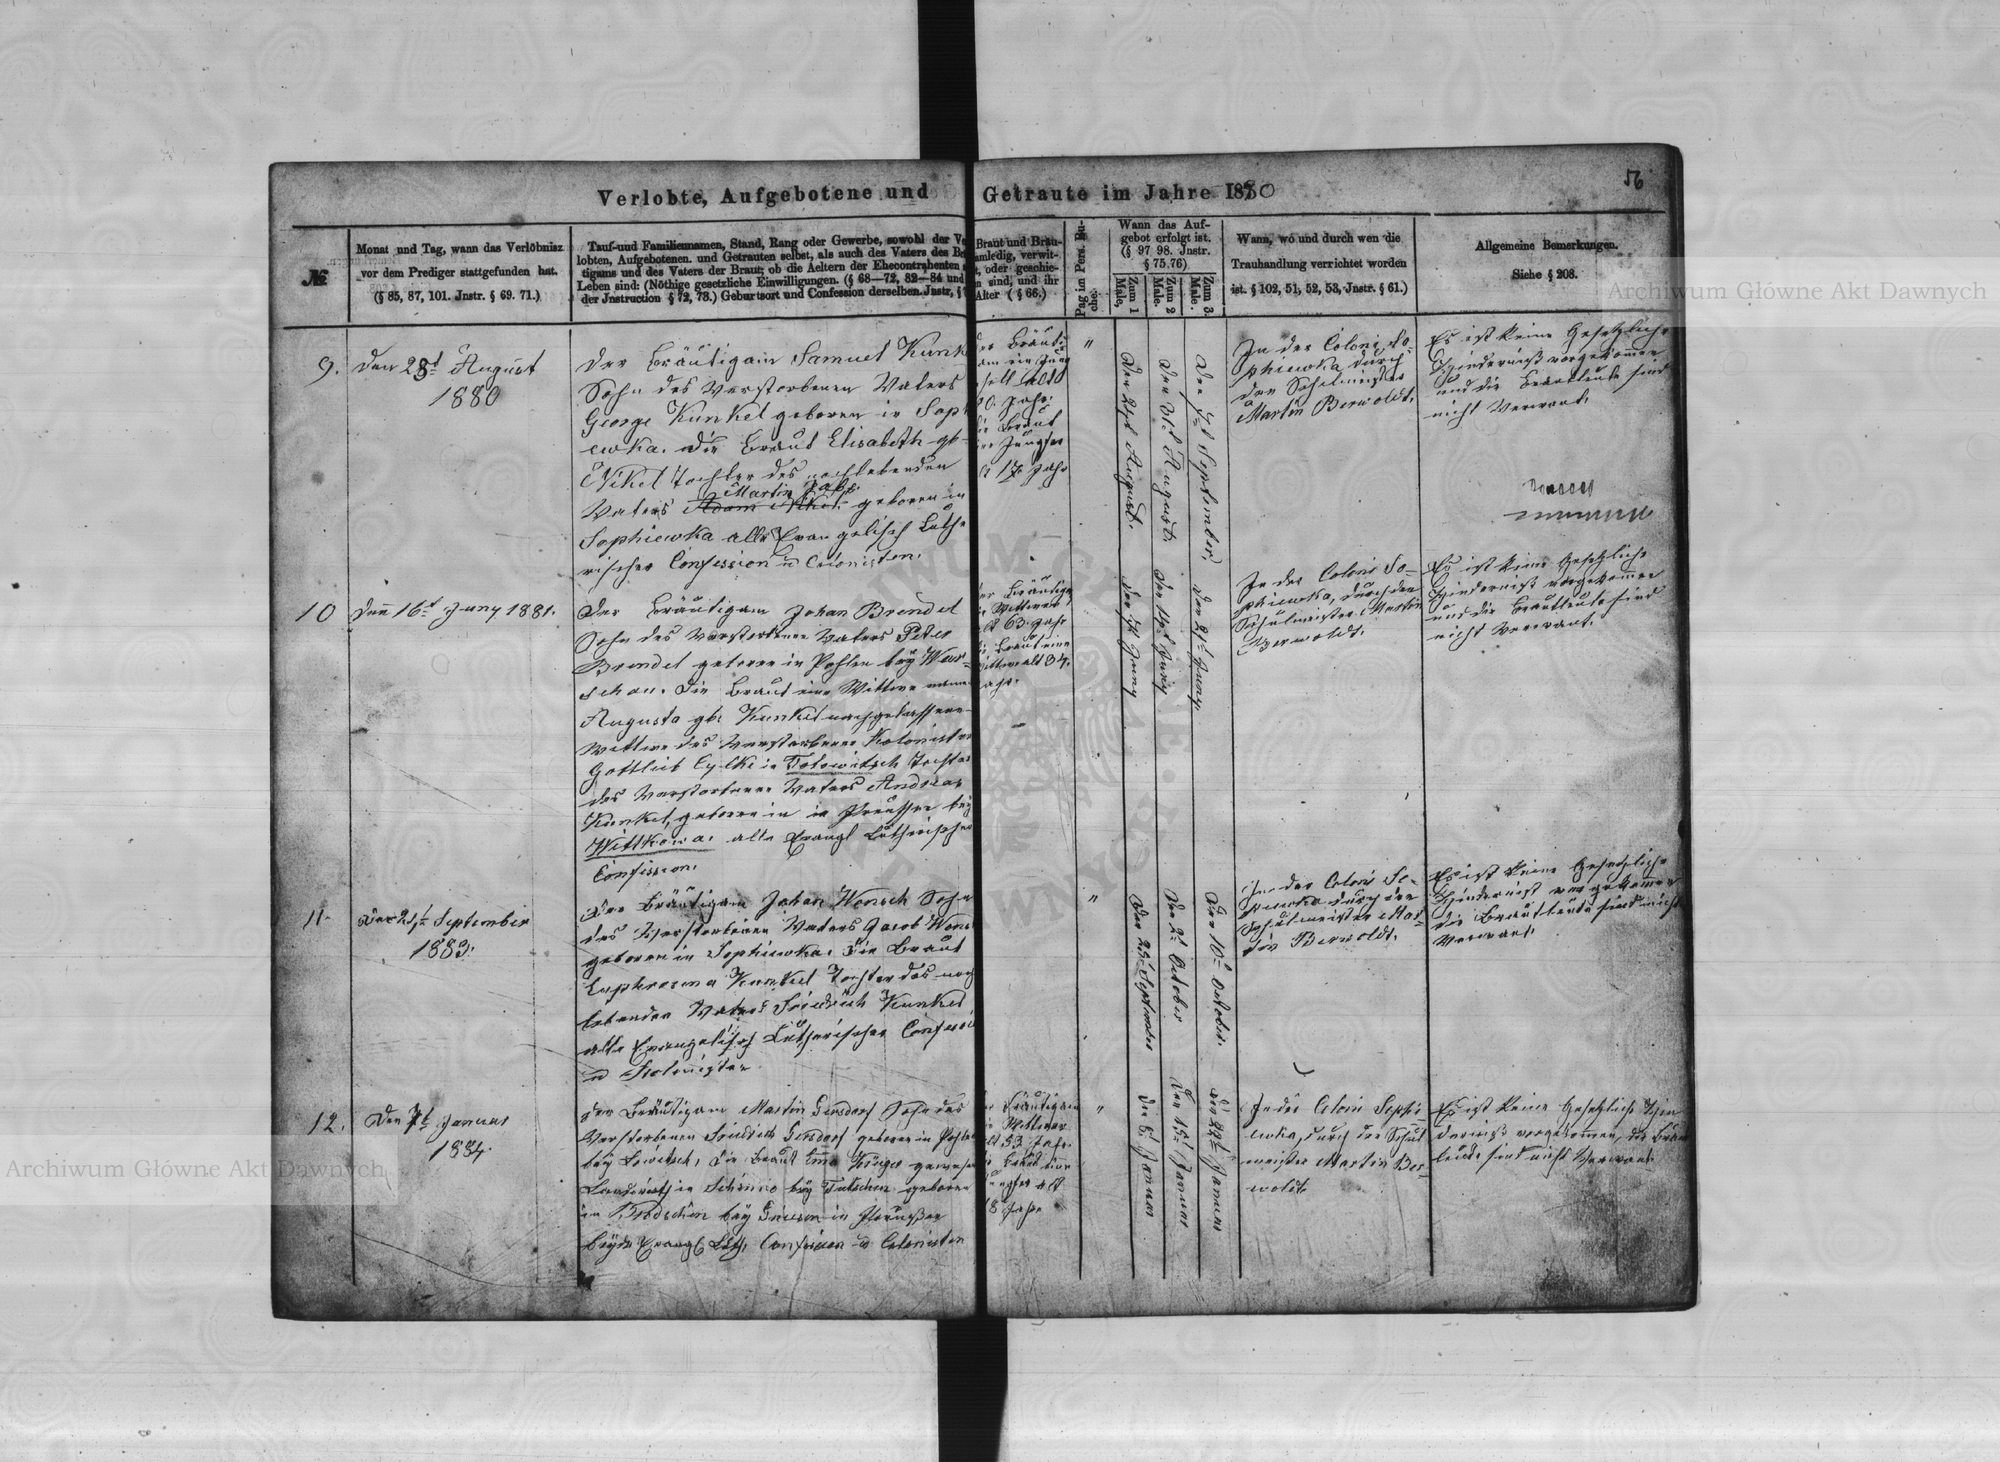 Verlobte, Aufgebotene und Getraute im Jahre 1880
56
№
Monat und Tag, wann das Verlöbnisz
vor dem Prediger stattgefunden hat.
(§ 85, 87, 101. Jnstr. § 69. 71.)
Tauf-und Familiennamen, Stand, Rang oder Gewerbe, sowohl der Ve
lobten, Aufgebotenen. und Getrauten selbst, als auch des Vaters des Br
tigams und des Vaters der Braut; ob die Aeltern der Ehecontrahenten
Leben sind: (Nöthige gesetzliche Einwilligungen. (§ 68—72, 82—84 und
der Jnstruction § 72, 73.) Geburtsort und Confession derselben. Jnstr, §
Braut und Bräu-
amledig, verwit-
t, oder geschie-
n sind, und ihr
Alter ( § 66.)
Pag im Pers. Bu-
che.
Wann das Auf-
gebot erfolgt ist.
(§ 97 98. Jnstr.
§ 75.76)
Zum 1
Male,
Zum 2
Male.
Zum 3.
Male.
Wann, wo und durch wen die
Trauhandlung verrichtet worden
ist. § 102, 51, 52, 53, Jnstr. § 61.)
Allgemeine Bemerkungen.
Siehe § 208.
9.
den 23t August
1880
Der Bräutigam Samuel Kunk
Sohn des Verstorbenen Vaters
George Kunkel geboren in Soph
ewka. die Braut Elisabeth gb-
Nikel Tochter des nachlebenden
Martin
Vaters Adam Nikel geboren in
Sophiewka alle Evangelisch Luthe
rischer Confession u Colonisten.
der Bräuti
am ein Jung
sell alt
20. Jahr.
die Braut
ine Jungfer
17 Jahr
"
Den 24t August.
Den 31t August.
Den 7t September,
In der Coloni So
phiewka durch
den Schulmeister
Martin Berwoldt,
Es ist keine Gesetzliche
Hinderniß vorgekommen
und die Brautleute sind
nicht Verwant.
10
Den 16t Juny 1881.
Der Bräutigam Johan Brendel
Sohn des Verstorbenen Vaters Peter
Brendel geboren in Pohlen bey War-
schau. Die Braut eine Wittwe name
Augusta gb. Kunkel nachgelassene
Wittwe des Verstorbenen Kolonisten
Gottlieb Cylke in Tolowitsch Tochter
des Verstorbenen Vaters Andreas
Kunkel, geboren in in Preussen bey
Wittkowa. alle Evangl Lutherischer
Confission.
er Bräutigam
Wittwer
alt 63. Jahr
Braut eine
Wittwe alt 34.
Jahr.
"
Den 14t Juny
Den 21t Juny.
In der Coloni So-
phiewka, durch den
Schulmeister Martin
Berwoldt.
Es ist keine Gesetzliche
Hinderniß vorgekommen
und die Brautleute sind
nicht Verwant.
11.
Den 21t September
1883.
Der Bräutigam Johan Wensch Sohn
des Verstorbenen Vaters Jacob Wens
geboren in Sophiewka. Die Braut
Euphrosina Kunkel Tochter des noch
lebenden Vaters Friedrich Kunkel
alle Evangelisch Lutherischer Confessi
u Kolonisten.
"
Den 25t September
Den 2t October
Den 10t October.
In der Coloni So-
piewka durch den
Schulmeister Mar-
tin Berwoldt.
Es ist keine Gesetzliche
Hinderniß vorgekommen
die Brautleute sind nicht
Verwant.
12.
Den 7t Januar
1884.
Der Bräutigam Martin Gensdorf Sohn des
Verstorbenen Friedrich Gensdorf geboren in Pohlen
bey Lowitsch, die Braut Emma Krüger
in bey Tutschin geboren
in bey in Preußen
beyde Evangl Luth. Confession u Colonisten
er Bräutigam
Wittwer
alt 53 Jahr.
Braut eine
Jungfer alt
18 Jahr
"
Den 8t Januar
Den 15t Januar
Den 22t Januar
In der Coloni Sophi-
ewka, durch den Schul
meister Martin Ber
woldt
Es ist keine Gesetzliche Hin
derniß vorgekommen, die Braut
leute sind nicht Verwant
Archiwum Główne Akt Dawnych
Archiwum Główne Akt Dawnych